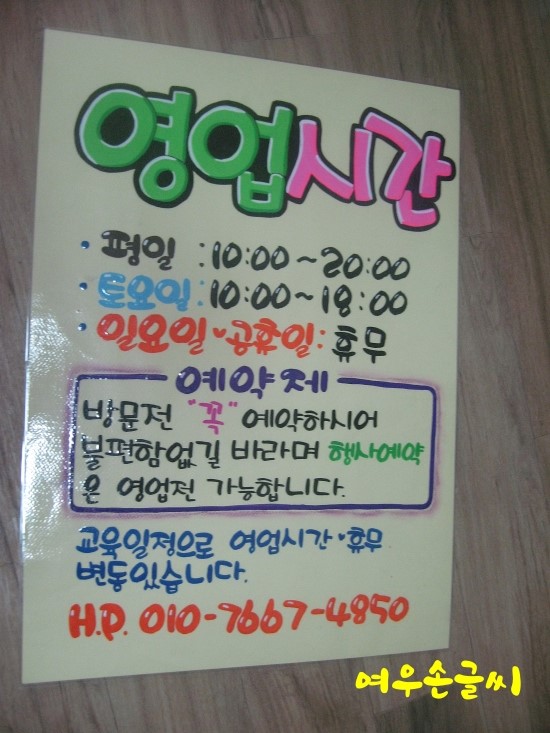 영업시간
· 평일 : 10:00~20:00
· 토요일 : 10:00~18:00
· 일요일·공휴일 : 휴무
예약제
방문전 "꼭" 예약하시어
불편함없길 바라며 행사예약
은 영업전 가능합니다.
교육일정으로 영업시간·휴무
변동있습니다.
H.P. 010-7667-4850
여우손글씨